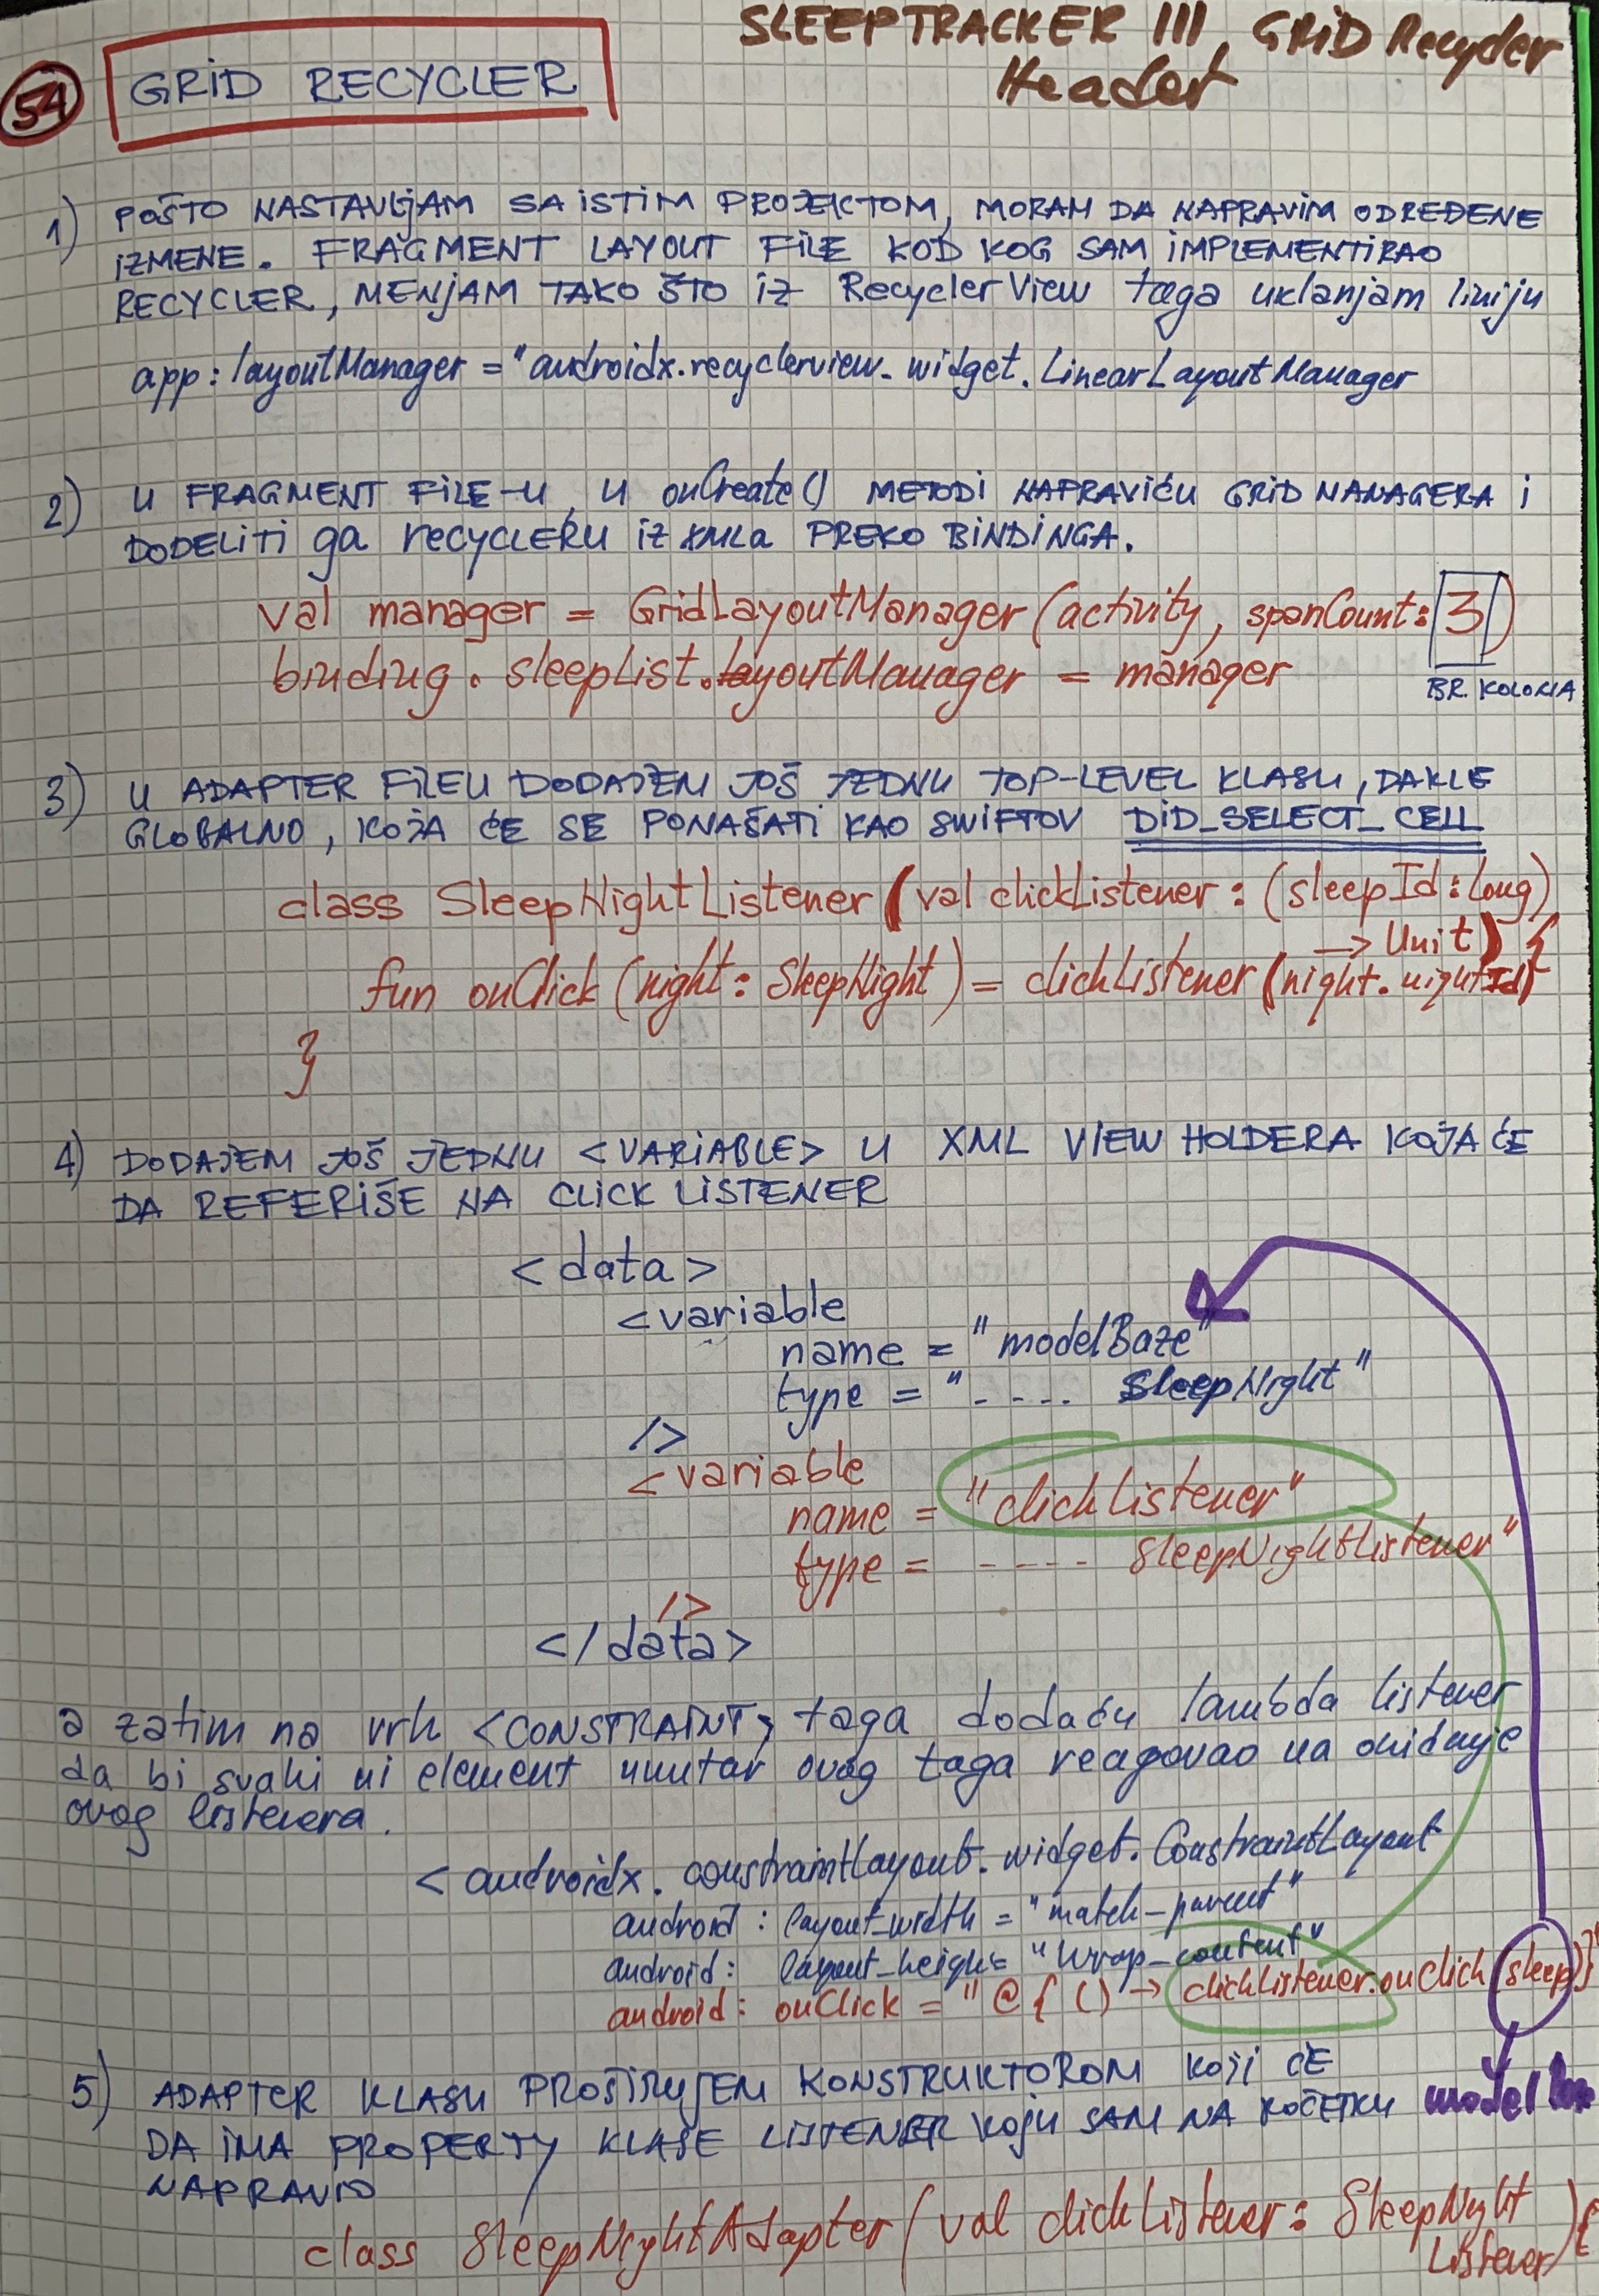 SLEEPTRACKER III, GRID Recycler
Header
54
GRID RECYCLER
1) POŠTO NASTAVLJAM SA ISTIM PROJEKTOM, MORAM DA NAPRAVIM ODREĐENE
IZMENE. FRAGMENT LAYOUT FILE KOD KOG SAM IMPLEMENTIRAO
RECYCLER, MENJAM TAKO ŠTO IZ RecyclerView taga uklanjam liniju
app:layoutManager = "androidx.recyclerview.widget.LinearLayoutManager
2) U FRAGMENT FILE-U, U onCreate() METODI NAPRAVIĆU GRID MANAGERA I
DODELITI ga RECYCLERU IZ XMLa PREKO BINDINGA.
val manager = GridLayoutManager(activity, spanCount: 3)
binding.sleepList.layoutManager = manager
BR. KOLONA
3) U ADAPTER FILEU DODAJEM JOŠ JEDNU TOP-LEVEL KLASU, DAKLE
GLOBALNO, KOJA ĆE SE PONAŠATI KAO SWIFTOV DID_SELECT_CELL
class SleepNightListener (val clickListener: (sleepId:Long)
→ Unit) {
fun onClick (night: SleepNight) = clickListener (night.nightId)
}
4) DODAJEM JOŠ JEDNU <VARIABLE> U XML VIEW HOLDERA KOJA ĆE
DA REFERIŠE NA CLICK LISTENER
<data>
<variable
name = "modelBaze"
type = "- - - - SleepNight"
/>
<variable
name = "clickListener"
type = - - - - SleepNightListener"
/>
</data>
a zatim na vrh <CONSTRAINT> taga dodaću lambda listener
da bi svaki ui element unutar ovog taga reagovao na okidanje
ovog listenera.
<androidx.constraintlayout.widget.ConstraintLayout
android: layout_width = "match_parent"
android: layout_height= "wrap_content"
android: onClick = "@{ () → clickListener.onClick (sleep)}"
5) ADAPTER KLASU PROŠIRUJEM KONSTRUKTOROM KOJI ĆE
DA IMA PROPERTY KLASE LISTENER KOJU SAM NA POČETKU
NAPRAVIO
class SleepNightAdapter (val clickListener: SleepNight
Listener) {